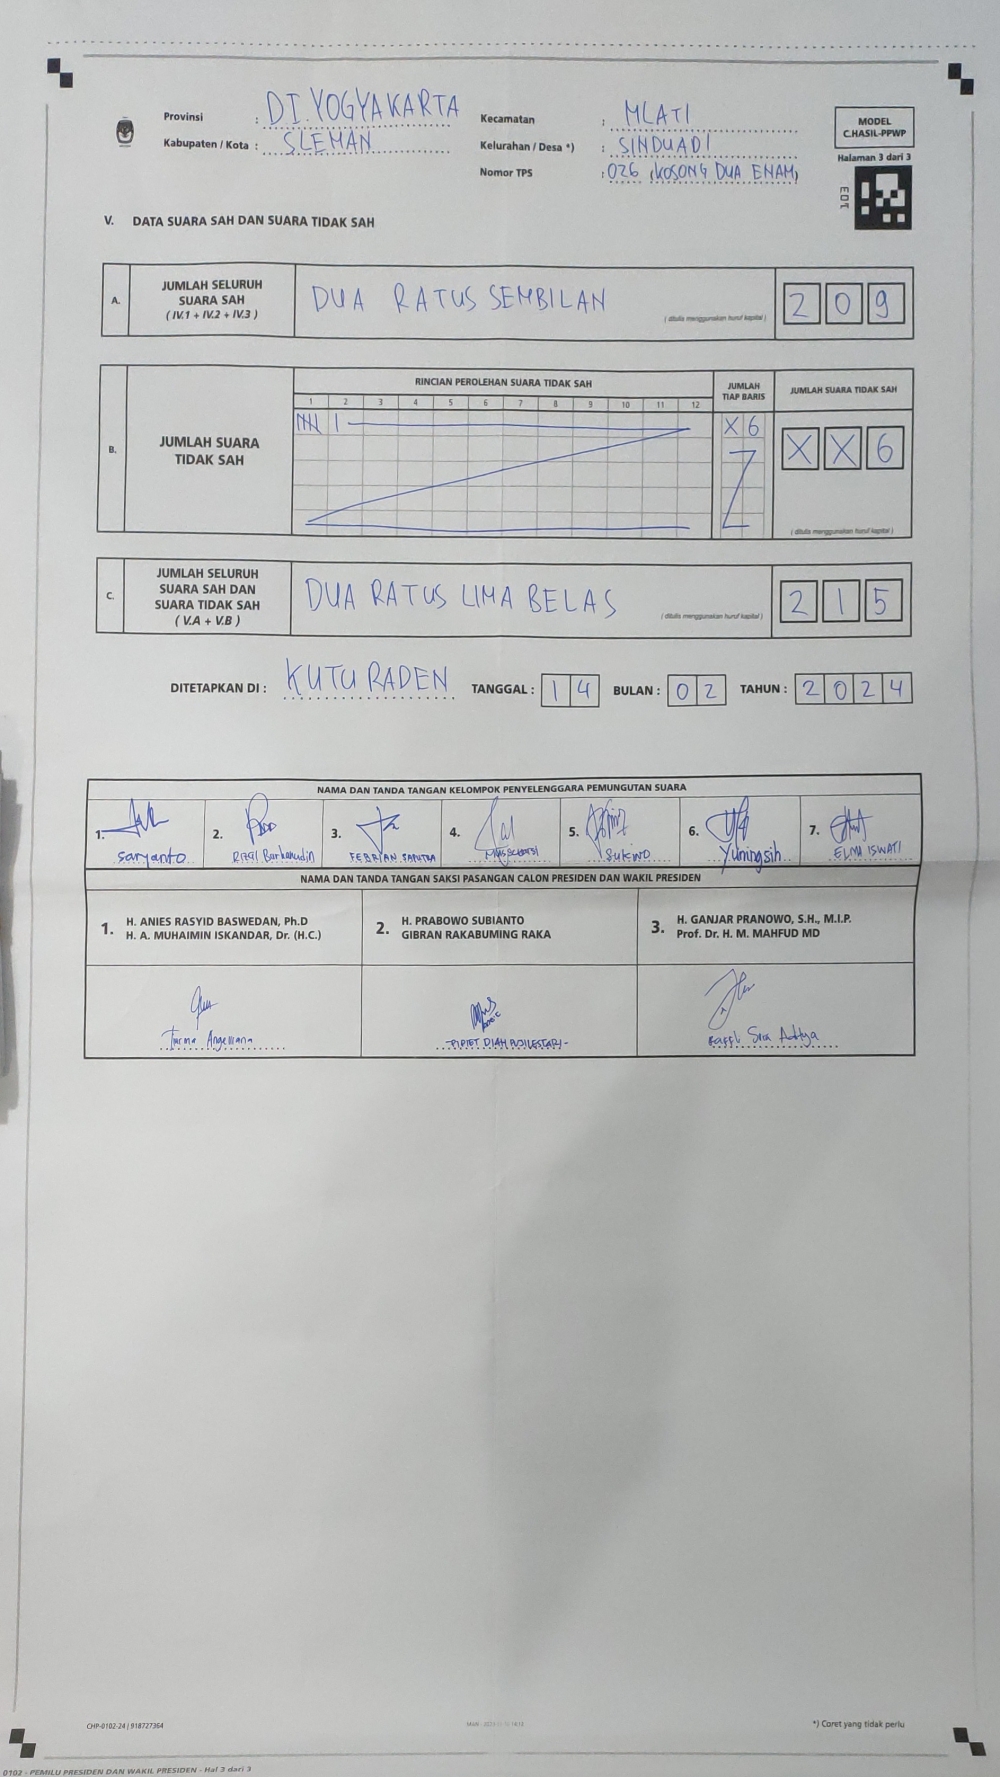 Provinsi : DI. YOGYAKARTA
Kabupaten / Kota : SLEMAN
Kecamatan : MLATI
Kelurahan / Desa *) : SINDUADI
Nomor TPS : 026 (KOSONG DUA ENAM)
MODEL
C.HASIL-PPWP
Halaman 3 dari 3
V. DATA SUARA SAH DAN SUARA TIDAK SAH
A. JUMLAH SELURUH
SUARA SAH
( IV.1 + IV.2 + IV.3 )
DUA RATUS SEMBILAN
( ditulis menggunakan huruf kapital )
2 0 9
B. JUMLAH SUARA
TIDAK SAH
RINCIAN PEROLEHAN SUARA TIDAK SAH
1 2 3 4 5 6 7 8 9 10 11 12
JUMLAH
TIAP BARIS
X 6
JUMLAH SUARA TIDAK SAH
X X 6
( ditulis menggunakan huruf kapital )
C. JUMLAH SELURUH
SUARA SAH DAN
SUARA TIDAK SAH
( V.A + V.B )
DUA RATUS LIMA BELAS
( ditulis menggunakan huruf kapital )
2 1 5
DITETAPKAN DI : KUTU RADEN TANGGAL : 1 4 BULAN : 0 2 TAHUN : 2 0 2 4
NAMA DAN TANDA TANGAN KELOMPOK PENYELENGGARA PEMUNGUTAN SUARA
1. 2. 3. 4. 5. 6. 7.
saryanto Burhanudin FEBRIAN SAPUTRA SUKINO Yuningsih ELMA ISWATI
NAMA DAN TANDA TANGAN SAKSI PASANGAN CALON PRESIDEN DAN WAKIL PRESIDEN
1. H. ANIES RASYID BASWEDAN, Ph.D
H. A. MUHAIMIN ISKANDAR, Dr. (H.C.)
2. H. PRABOWO SUBIANTO
GIBRAN RAKABUMING RAKA
3. H. GANJAR PRANOWO, S.H., M.I.P.
Prof. Dr. H. M. MAHFUD MD
PIPIET DIAH PUJILESTARI
CHP-0102-24 | 918727364
*) Coret yang tidak perlu
0102 - PEMILU PRESIDEN DAN WAKIL PRESIDEN - Hal 3 dari 3